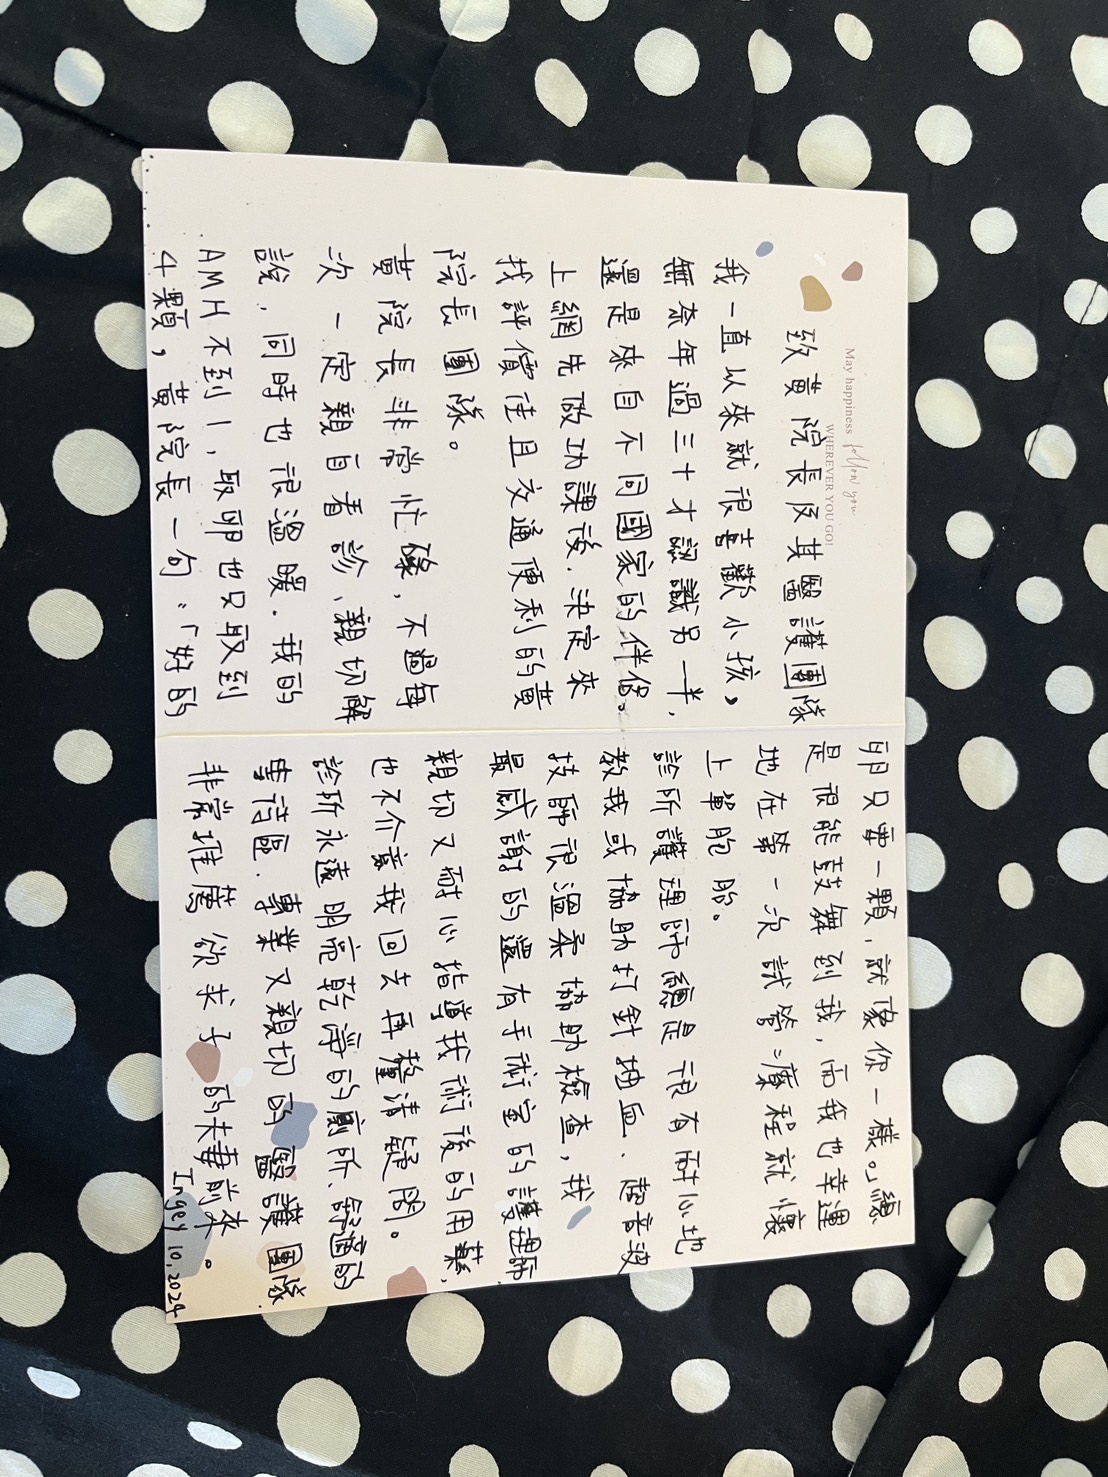 May happiness follow you
WHEREVER YOU GO!
致黃院長及其醫護團隊
我一直以來就很喜歡小孩,
無奈年過三十才認識另一半,
還是來自不同國家的伴侶。
上網先做功課後,決定來
找評價佳且交通便利的黃
院長團隊。
黃院長非常忙碌,不過每
次一定親自看診、親切解
說,同時也很溫暖。我的
AMH不到1,取卵也只取到
4顆,黃院長一句:「好的
卵只要一顆,就像你一樣。」總
是很能鼓舞到我,而我也幸運
地在第一次試管療程就懷
上單胞胎。
診所護理師總是很有耐心地
教我或協助打針抽血、超音波
技師很溫柔協助檢查,我
最感謝的還有手術室的護理師,
親切又耐心指導我術後的用藥,
也不介意我回去再釐清疑問。
診所永遠明亮乾淨的廁所、舒適的
等待區、專業又親切的醫護團隊,
非常推薦欲求子的夫妻前來。
Ingey 10,2024